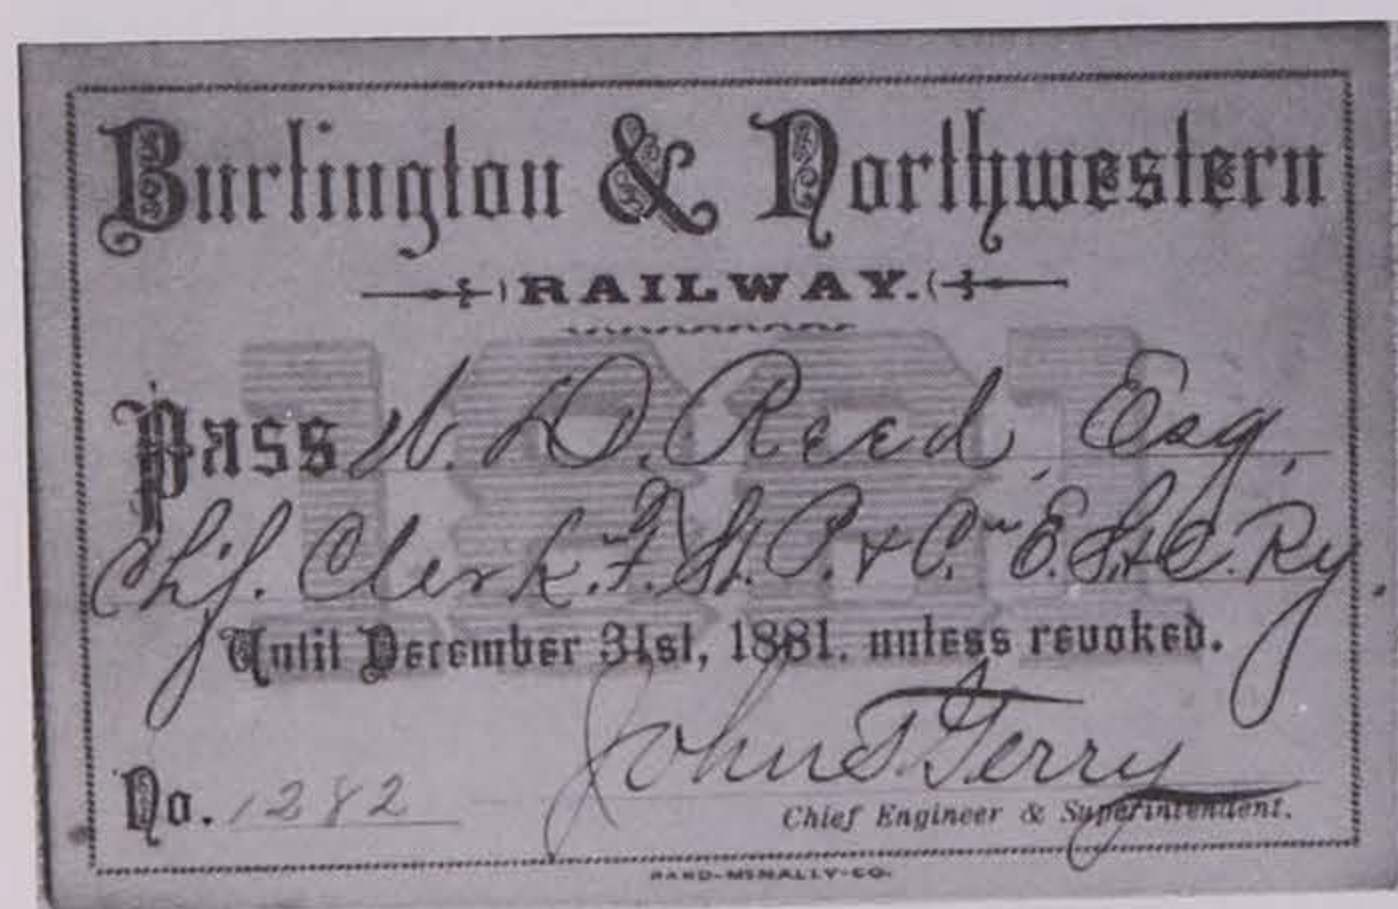 Burlington & Northwestern
RAILWAY.
1881
Pass W. D. Reed, Esq,
Ch'f. Clerk. F. St. P. & C. E. St. & C. Ry.
Until December 31st, 1881. unless revoked.
John T. Gerry
No. 1282
Chief Engineer & Superintendent.
RAND-McNALLY-CO.